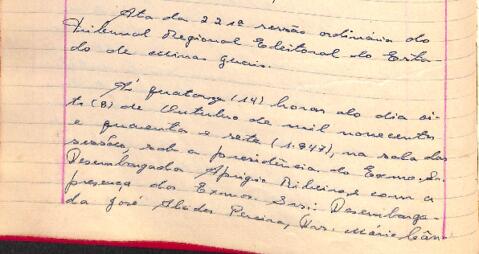 Ata da 221ª sessão ordinária do
Tribunal Regional Eleitoral do Esta-
do de Minas Gerais.
Ás quatorze (14) horas do dia oi-
to (8) de Outubro de mil novecentos
e quarenta e sete (1.947), na sala das
sessões, sob a presidência do Exmo. Sr.
Desembargador Aprigio Ribeiro, e com a
presença dos Exmos. Srs.: Desembarga-
da José Alcides Pereira, Drs. Mário